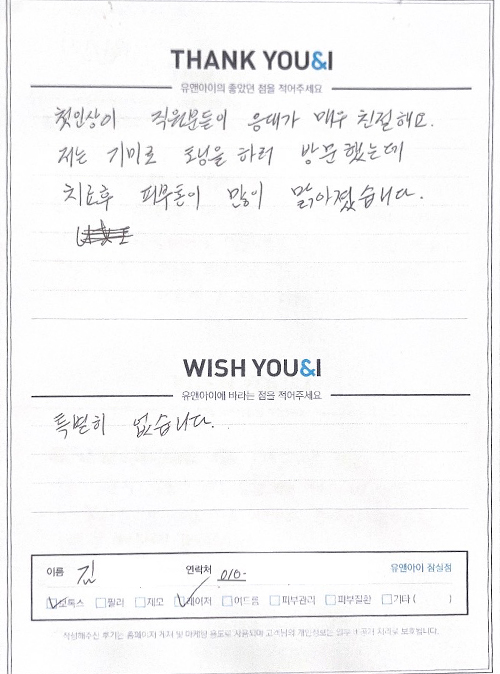 THANK YOU&I
유앤아이의 좋았던 점을 적어주세요
첫인상이 직원분들이 응대가 매우 친절해요.
저는 기미로 토닝을 하러 방문했는데
치료후 피부톤이 많이 맑아졌습니다.
WISH YOU&I
유앤아이에 바라는 점을 적어주세요
특별히 없습니다.
이름 김 연락처 010- 유앤아이 잠실점
보톡스 필러 제모 레이저 여드름 피부관리 피부질환 기타 ( )
작성해주신 후기는 홈페이지 게재 및 마케팅 용도로 사용되며 고객님의 개인정보는 보호됩니다.